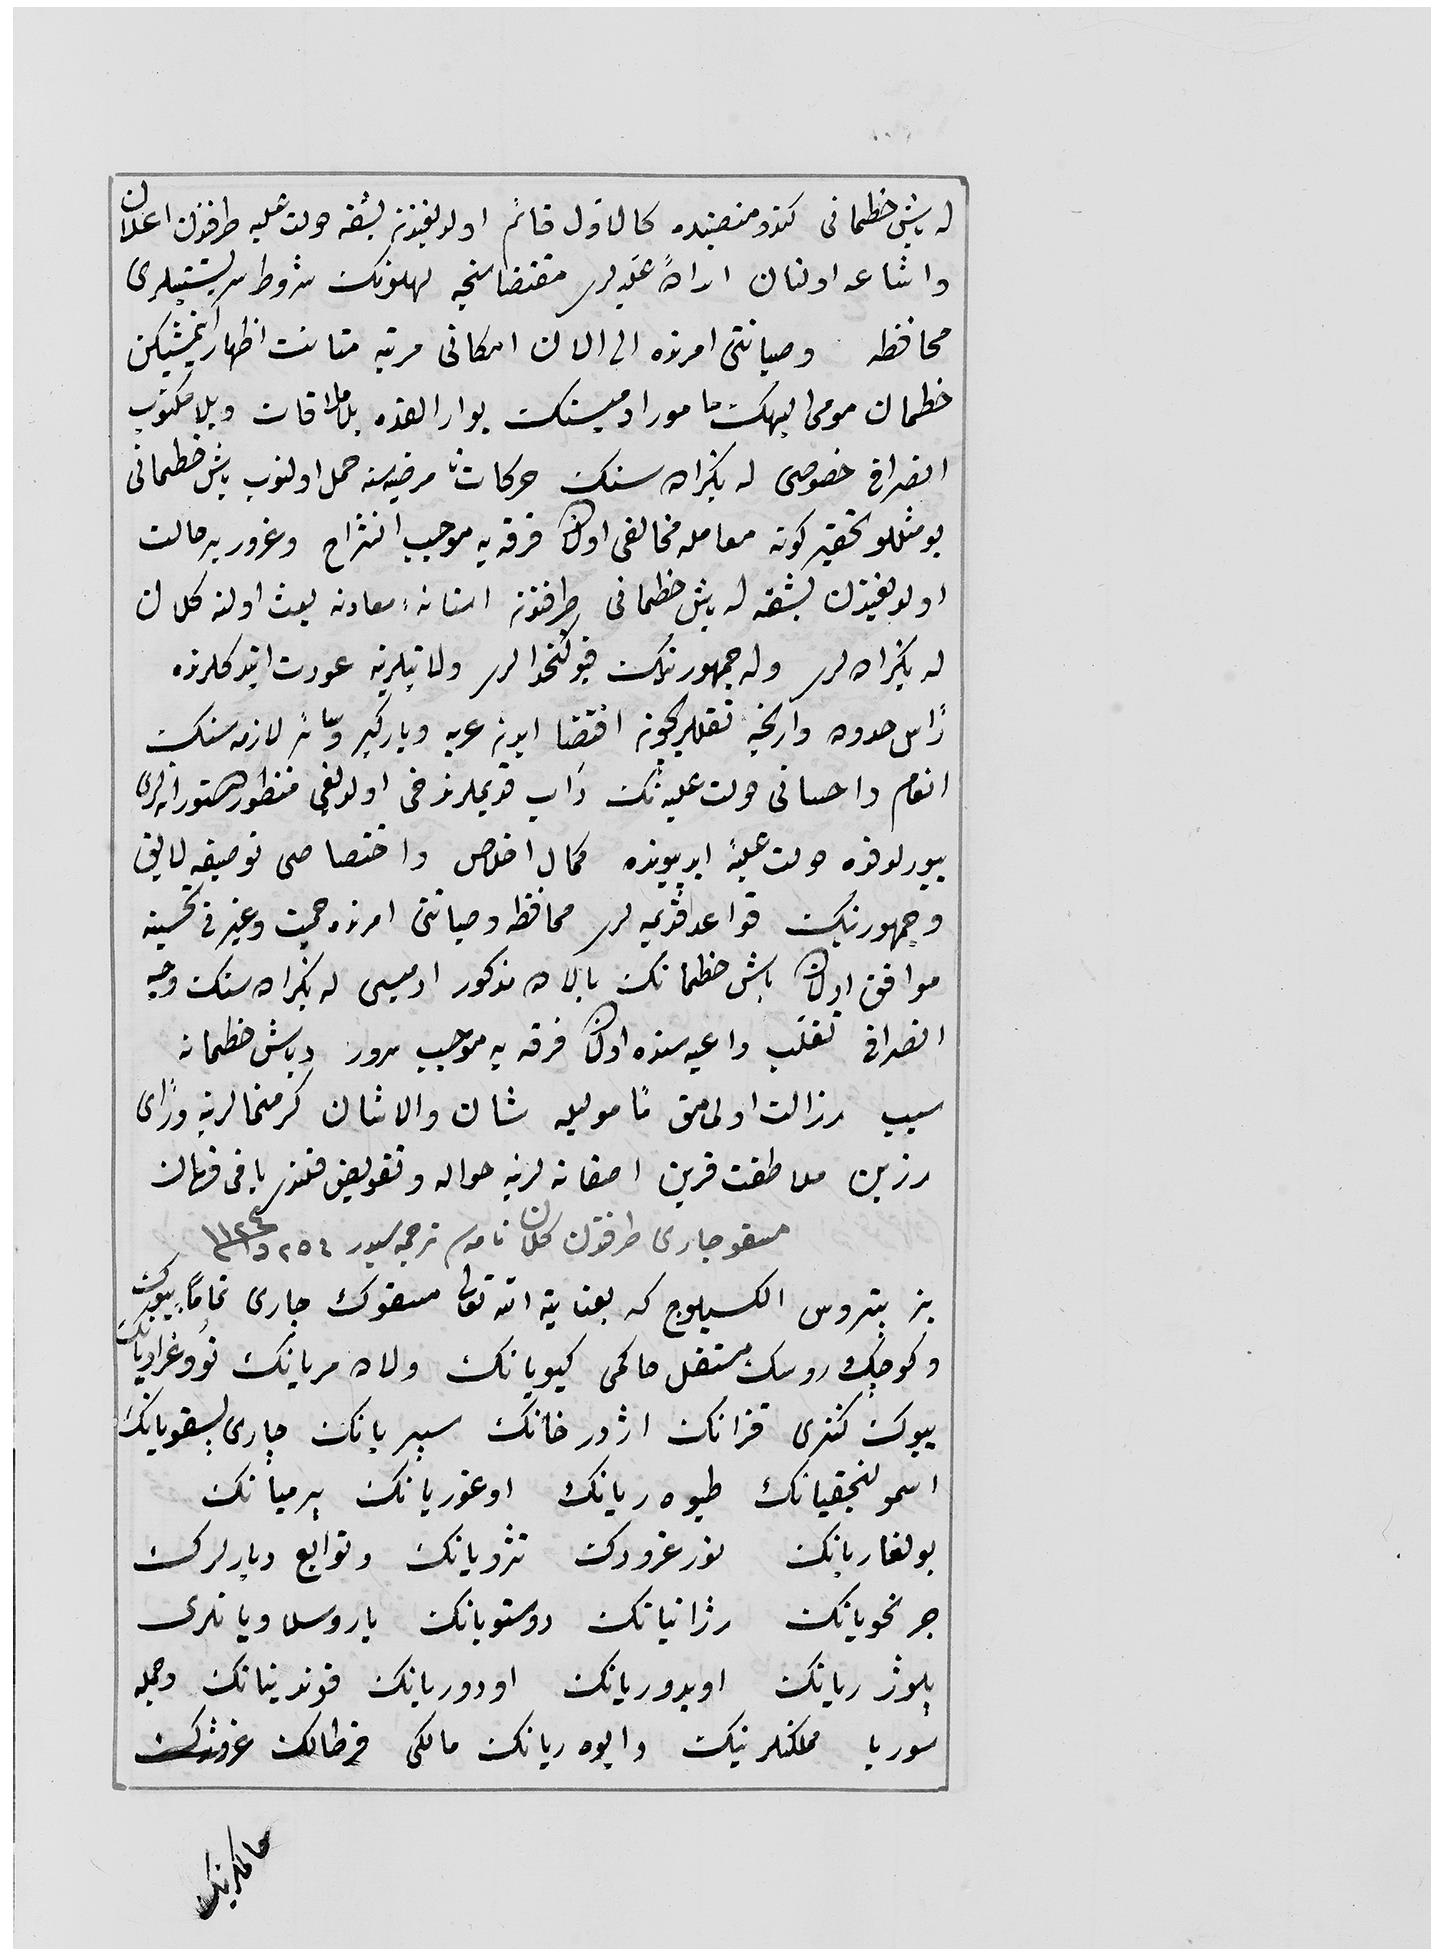 له باش خطمانی کندو منصبنده کالاول قائم اولدیغندن بشقه دولت علیه طرفندن اعلان
واشاعه اولنان اراده علیه لری مقتضاسنجه لهلونک شروط سربستیتلری
محافظه وصیانتی امرنده الی الان امکانی مرتبه متانت اظهار ایتمشیکن
خطمان مومی الیهک مامور ادمیسنک بو ارالقده بلا ملاقات وبلا مکتوب
انصرافی خصوصی له بکزاده سنک حرکات نا مرضیه سنه حمل اولنوب باش خطمانی
بو مثللو تحقیر کونه معامله مخالفی اولان فرقه یه موجب انشراح وغرور بر حالت
اولدیغندن بشقه له باش خطمانی طرفندن استانه سعادته بعث اولنه کلان
له بکزاده لری وله جمهورینک قپو کتخدالری ولایتلرینه عودت ایتدکلرنده
رأس حدوده وارنجه نقللریچون اقتضا ایدن عربه وبارکیر وسائر لازمه سنک
انعام واحسانی دولت علیه نک دأب قدیملرندخی اولدیغی منظور دستورانه لری
بیورلدقده دولت علیهٔ ابدپیونده کمال اخلاص واختصاصی توصیفه لایق
وجمهورینک قواعد قدیمه لری محافظه وصیانتی امرنده حمیت وغیرتی تحسینه
موافق اولان باش خطمانک بالاده مذکور ادمیسی له بکزاده سنک وجه
انصرافی تغلب داعیه سنده اولان فرقه یه موجب سرور وباش خطمانه
سبب رزالت اولمامق مأمولیله شان والاشان کرمنمالرینه ورأی
رزین ملاطفت قرین اصفانه لرینه حواله وتفویض قلندی باقی فرمان
مسقو چاری طرفندن کلان نامه نک ترجمه سیدر
بز پتروس الکسیویچ که بعنایة الله تعالی مسقونک چاری تماماً بیوک
وکوچک روسک مستقل حاکمی کیویانک ولادمریانک نووغرادیانک
بیوک کنزی قزانک اژدرخانک سیبریانک چاری پسقویانک
اسمولنچقیانک طیوه ریانک اوغوریانک پرمیانک
بولغاریانک نور غرودک نزویانک وتوابع دیارلرک
چرنحویانک رزانیانک روستویانک یاروسلاویانلری
بلوزریانک اوبدوریانک اودوریانک قوندینانک وجمله
سوریا مملکتلرینک وایوه ریانک مالکی قرطالک غروزنک
حاکمرینک